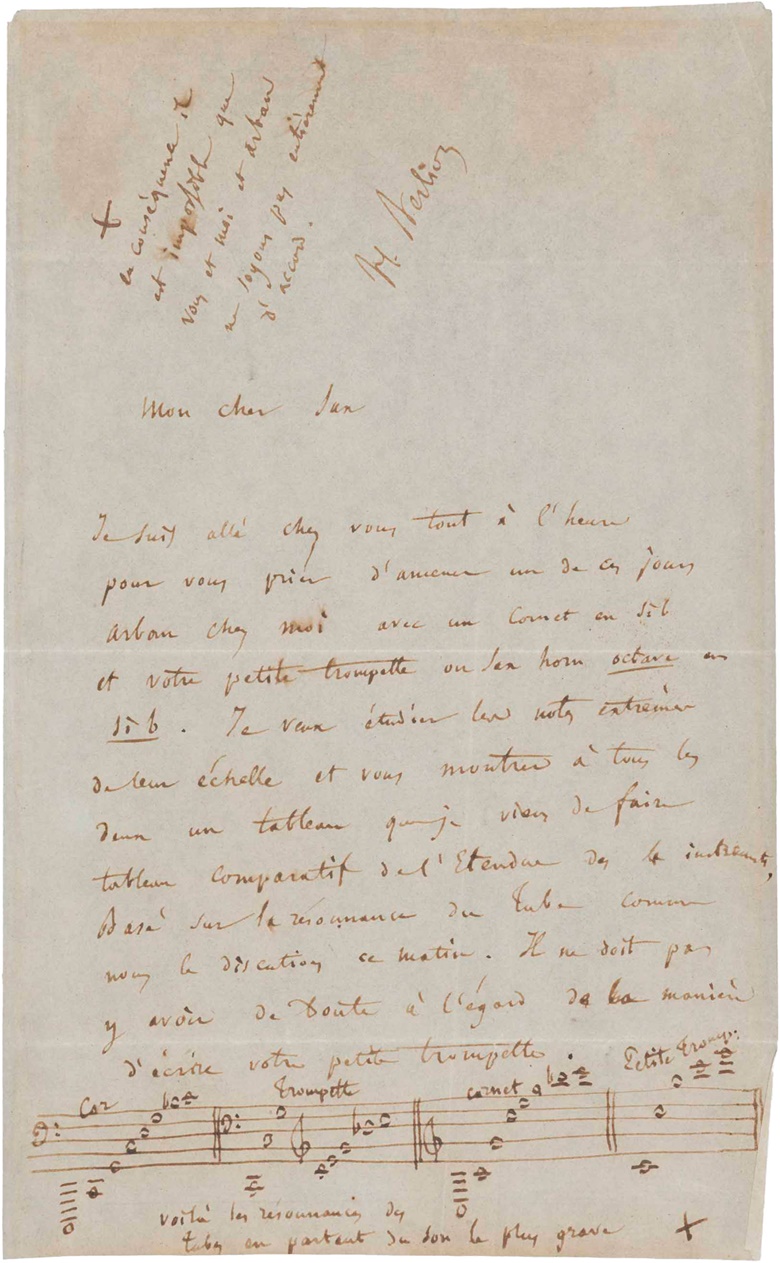 Mon cher Sax
Je suis allé chez vous tout à l'heure
pour vous prier d'amener un de ces jours
arban chez moi avec un Cornet en si b
et votre petite trompette ou Sax horn octave en
si b. Je veux étudier les notes extrêmes
de leur échelle et vous montrer à tous les
deux un tableau que je viens de faire
tableau comparatif de l'Etendue des 4 instruments,
Basé sur la résonnance du Tube comme
nous le discutions ce matin. Il ne doit pas
y avoir de Doute à l'égard de la manière
d'écrire votre petite trompette.
Cor Trompette cornet Petite Tromp:
voilà les résonnances des
tubes en partant du son le plus grave X
X
en conséquence il
est impossible que
vous et moi et arban
ne soyons pas entièrement
d'accord.
H. Berlioz